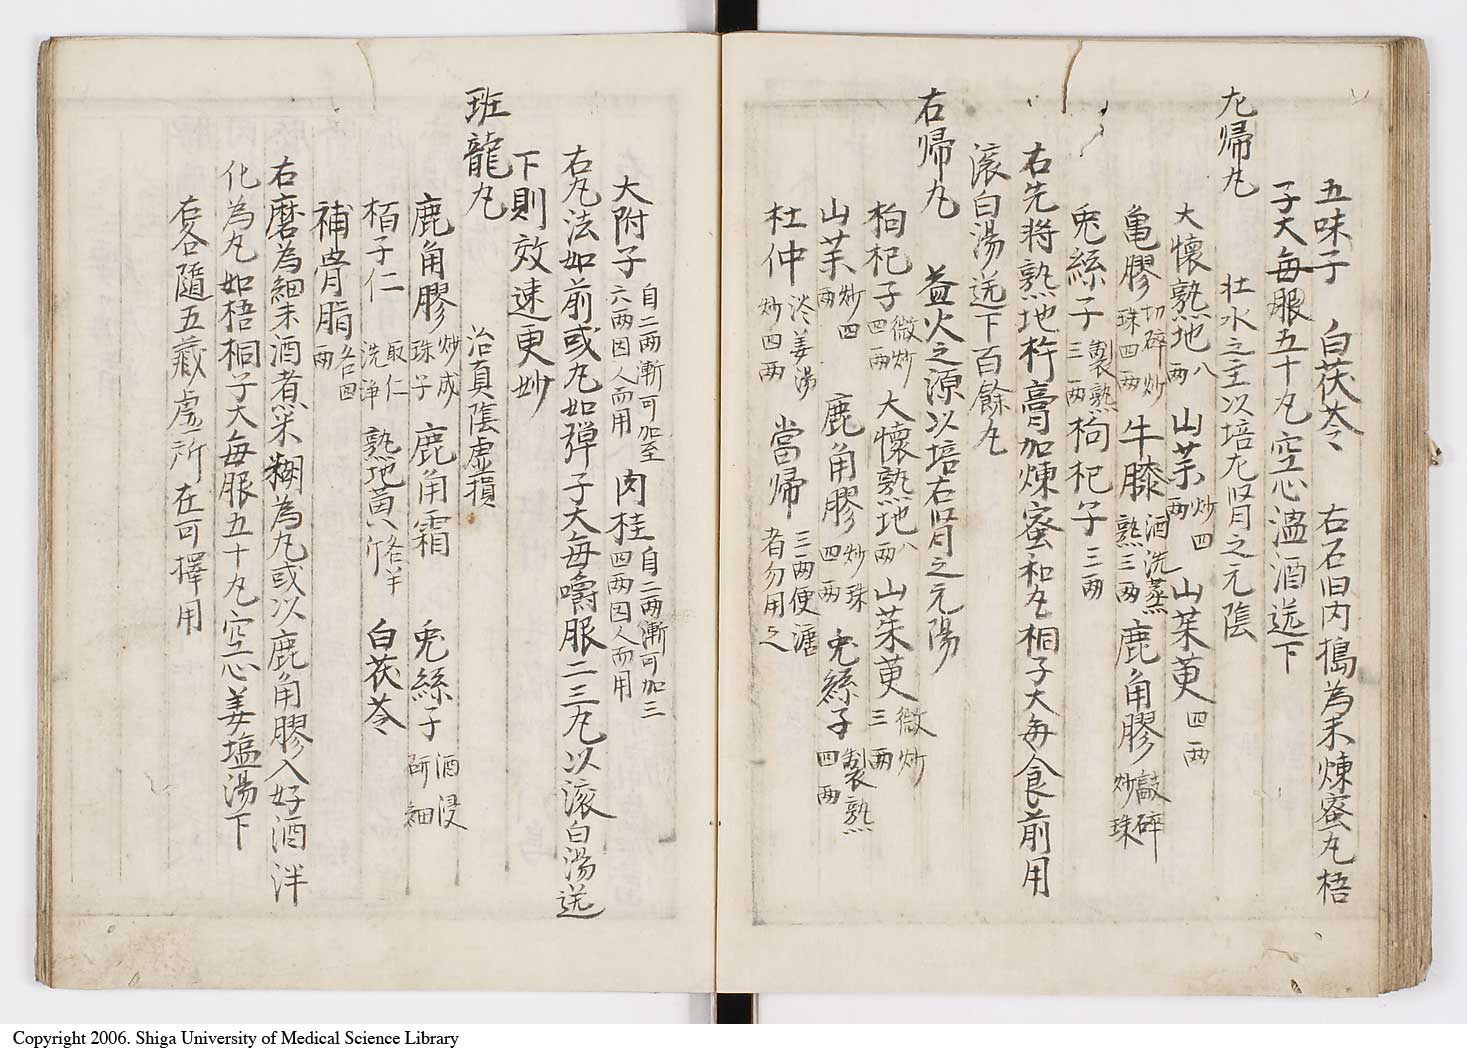 五味子 白茯苓 右石臼内搗為末煉蜜丸梧
子大每服五十丸空心温酒送下
左帰丸 壮水之主以培左肾之元陰
大懐熟地八两 山芋炒四两 山茱萸四两
亀膠切碎炒珠四两 牛膝酒洗蒸熟三两 鹿角膠敲碎炒珠
兎絲子製熟三两 枸杞子三两
右先将熟地杵膏加煉蜜和丸桐子大每食前用
滚白湯送下百餘丸
右帰丸 益火之源以培右肾之元陽
枸杞子微炒四两 大懐熟地八两 山茱萸微炒三两
山芋炒四两 鹿角膠炒珠四两 兎絲子製熟四两
杜仲姜湯炒四两 當帰三两便溏者勿用之
大附子自二两漸可加至六两因人而用 肉桂自二两漸可加三四两因人而用
右丸法如前或丸如弾子大每嚼服二三丸以滚白湯送
下則效速更妙
班龍丸 治真陰虚損
鹿角膠炒成珠子 鹿角霜 兎絲子酒浸研細
栢子仁取仁洗浄 熟地黄各半斤 白茯苓
補骨脂各四两
右磨為細末酒煮米糊為丸或以鹿角膠入好酒泮
化為丸如梧桐子大每服五十丸空心姜塩湯下
右各隨五藏虚所在可擇用
Copyright 2006. Shiga University of Medical Science Library